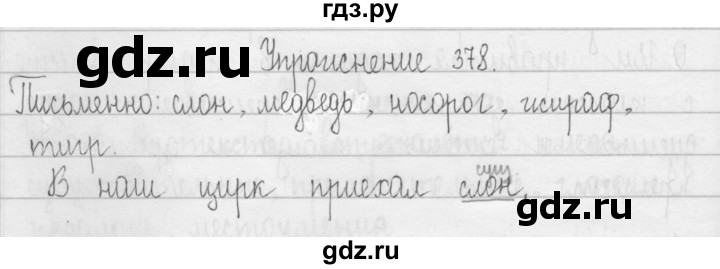 гдз.ру
gdz.ru
Упражнение 378.
Письменно: слон, медведь, носорог, жираф,
тигр.
сущ
В наш цирк приехал слон.
gdz.ru
gdz.ru